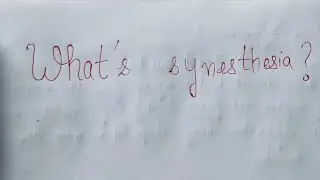 What's synesthesia?